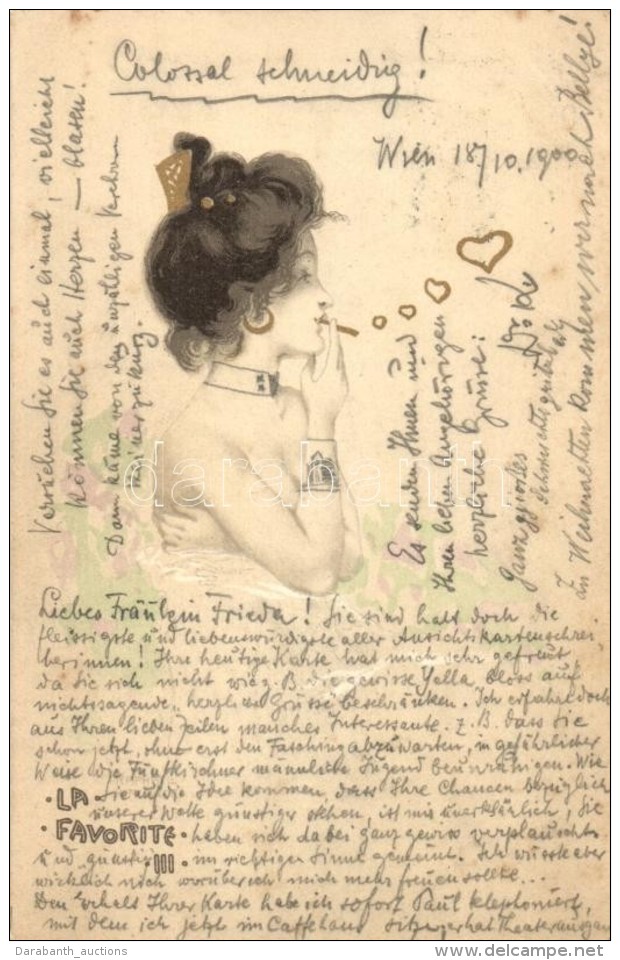 Colossal schneidig!
Wien 18/10. 1900
Versuchen Sie es auch einmal, vielleicht
können Sie auch Herzen — blasen!
Dann käme von den unzähligen
einer zu kurz.
Es senden Ihnen und
Ihren lieben Angehörigen
herzliche Grüsse:
Ganz grosses
Zu Weihnachten kommen wir nach Bellye!
darabanth
Liebes Fräulein Frieda! Sie sind halt doch die
fleissigste und liebenswürdigste aller Ansichtskartenschrei
berinnen! Ihre heutige Karte hat mich sehr gefreut,
da Sie sich nicht wie z. B. die gewisse Yella, bloss auf
nichtssagende "herzliche Grüsse" beschränken. Ich erfahre doch
aus Ihren lieben Zeilen manches Interessante. z. B. dass Sie
schon jetzt, ohne erst den Fasching abzuwarten, in gefährlicher
Weise die Fünfkirchner männliche Jugend beunruhigen. Wie
Sie auf die Idee kommen, dass Ihre Chancen bezüglich
unserer Wette günstiger stehen, ist mir unerklärlich, Sie
haben sich dabei ganz gewiss verplauscht
und "günstig" im richtigen Sinne gemeint. Ich wüsste aber
wirklich nicht worüber ich mich mehr freuen sollte...
Den Inhalt Ihrer Karte habe ich sofort Paul telephoniert,
mit dem ich jetzt im Caffehaus sitze, er hat Theaterausgang
·LA·
FAVORITE·
III·
Darabanth_auctions